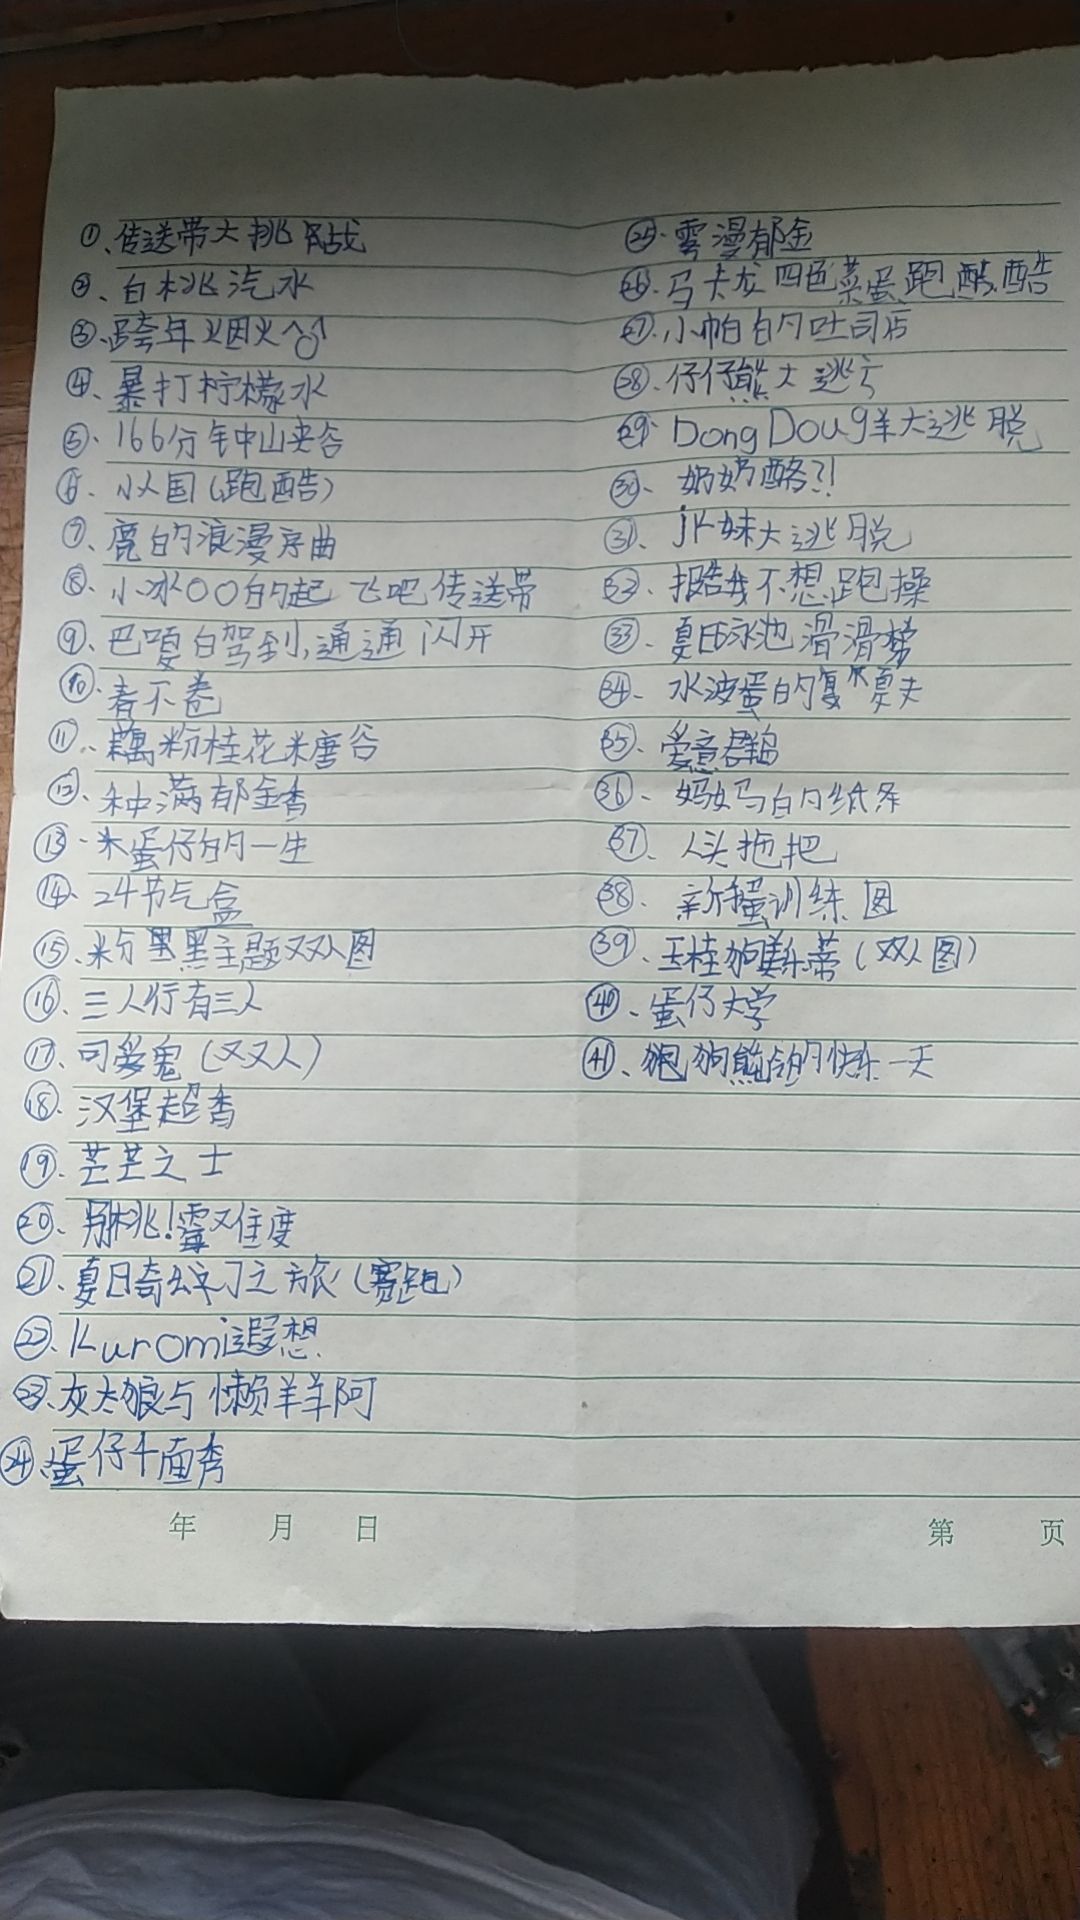 ①、传送带大挑战
②、白桃汽水
③、跨年烟火
④、暴打柠檬水
⑤、166分钟中山夹谷
⑥、小人国(跑酷)
⑦、鹿的浪漫序曲
⑧、小冰〇〇的起飞吧传送带
⑨、巴嘎白驾到,通通闪开
⑩、春不卷
⑪、藕粉桂花糖谷
⑫、种满郁金香
⑬、米蛋仔的一生
⑭、24节气盒
⑮、粉黑黑主题双人图
⑯、三人行有三人
⑰、可爱鬼(双人)
⑱、汉堡超香
⑲、芒芒之士
⑳、别桃!霉难度
㉑、夏日奇幻之旅(赛跑)
㉒、Kuromi遐想
㉓、灰太狼与懒羊羊阿
㉔、蛋仔千面秀
㉕、雾漫郁金
㉖、马卡龙四色菜蛋跑酷酷
㉗、小帕的吐司店
㉘、仔仔熊大逃亡
㉙、DongDong羊大逃脱
㉚、奶奶酪?!
㉛、jk妹大逃脱
㉜、报告我不想跑操
㉝、夏日泳池滑滑梯
㉞、水波蛋的夏天
㉟、爱意群岛
㊱、妈妈的纸条
㊲、人头拖把
㊳、新蛋训练图
㊴、玉桂狗美乐蒂(双人图)
㊵、蛋仔大学
㊶、狗狗熊的快乐一天
年 月 日
第 页